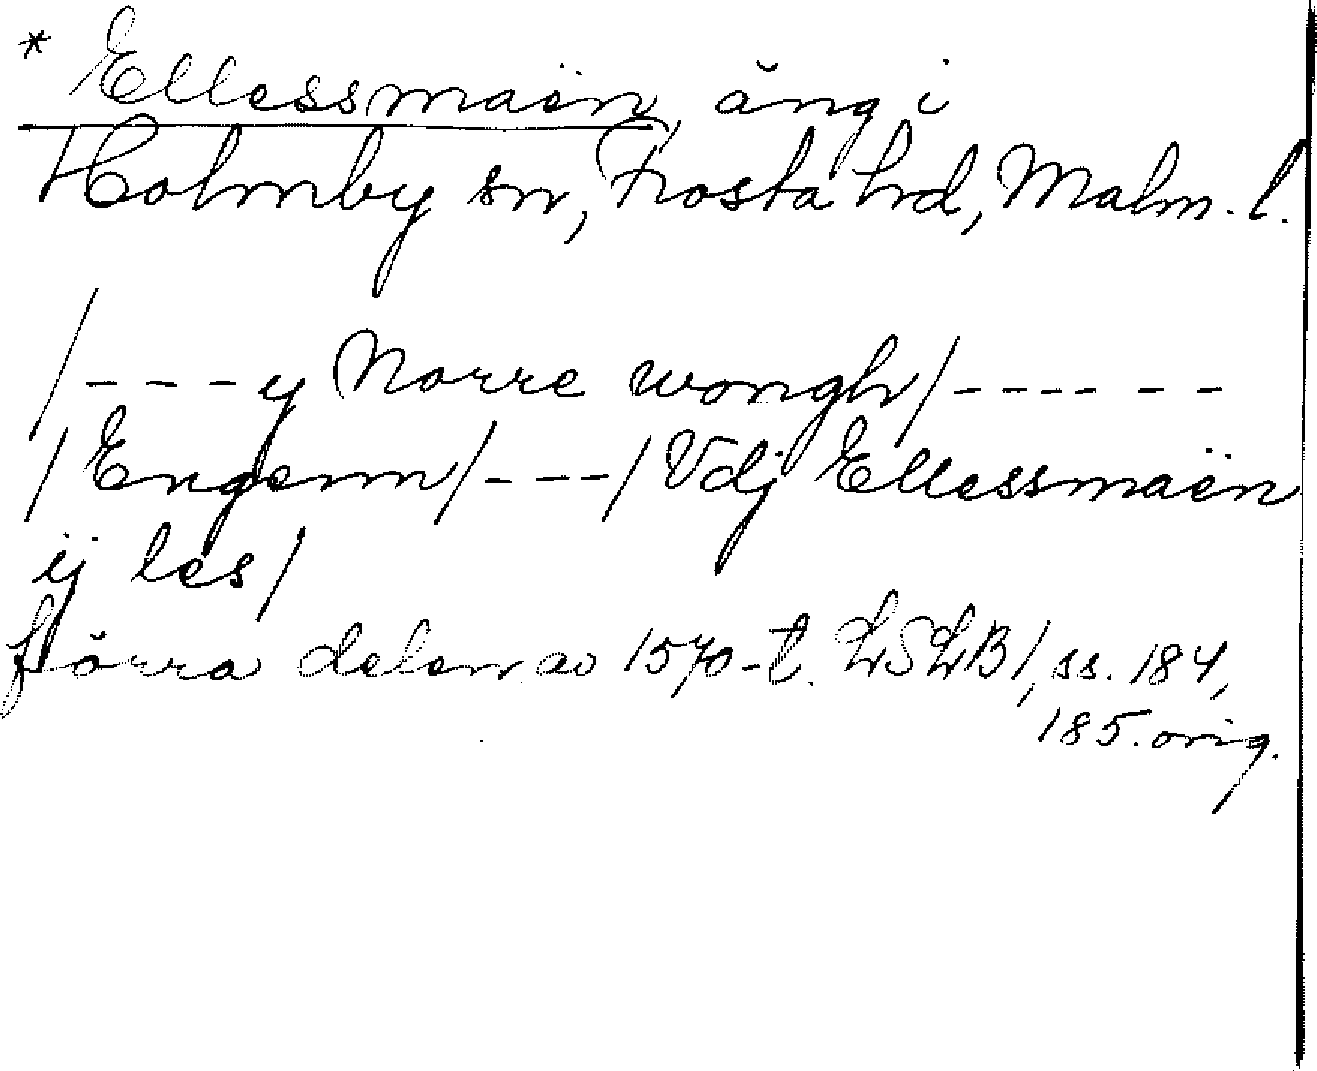 * Ellessmaën, äng i
Holmby sn, Frosta hd, Malm. l.
/ - - - y Norre wongh / - - - - - -
/ Engenn / - - - / Vdj Ellessmaën
ij les /
förra delen av 1570-t. LSLB 1, ss. 184,
185. orig.